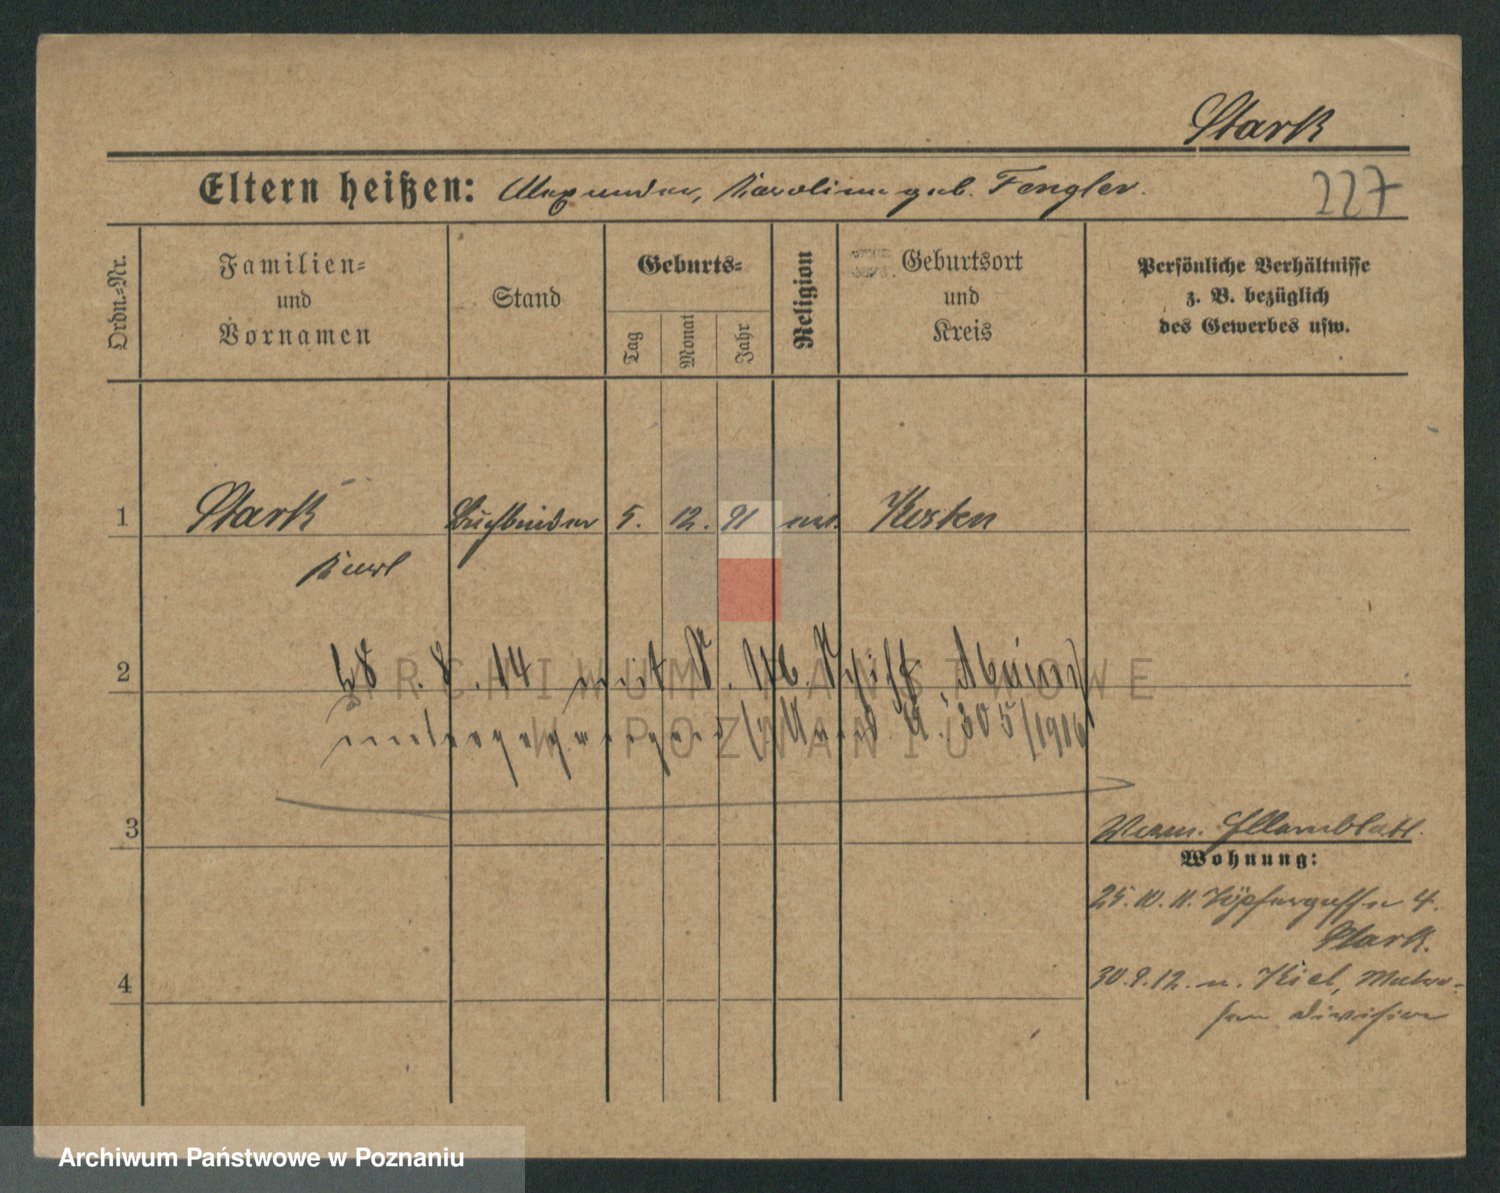 Stark
Eltern heißen: Alexander, Karoline geb. Fengler.
227
Ordn.-Nr.
Familien-
und
Vornamen
Stand
Geburts-
Tag
Monat
Jahr
Religion
Geburtsort
und
Kreis
Persönliche Verhältnisse
z. B. bezüglich
des Gewerbes usw.
1 Stark Buchbinder 5. 12. 91 Kosten
Karl
2 28.8.14 mit Schiff
untergegangen 305/1916
3
Elternblatt.
Wohnung:
25.10.11. Töpfergasse 4.
Stark.
4 30.9.12. n. Kiel, Matro-
sen division
ARCHIWUM PAŃSTWOWE
W POZNANIU
Archiwum Państwowe w Poznaniu